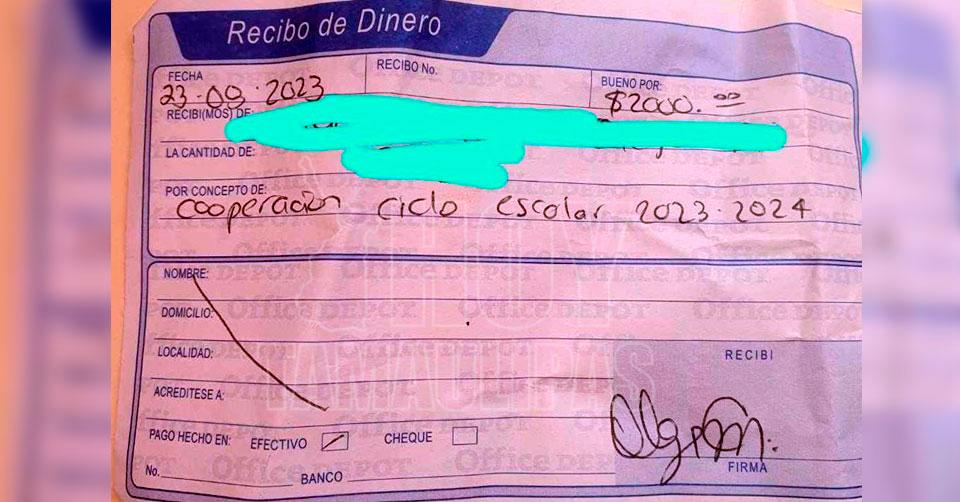 Recibo de Dinero
FECHA RECIBO No. BUENO POR:
23.08.2023 $2000.00
RECIBI(MOS) DE:
LA CANTIDAD DE:
POR CONCEPTO DE:
cooperación ciclo escolar 2023-2024
NOMBRE:
DOMICILIO:
LOCALIDAD:
RECIBI
ACREDITESE A:
PAGO HECHO EN: EFECTIVO CHEQUE
FIRMA
No. BANCO
Office DEPOT
HOY
TAMAULIPAS